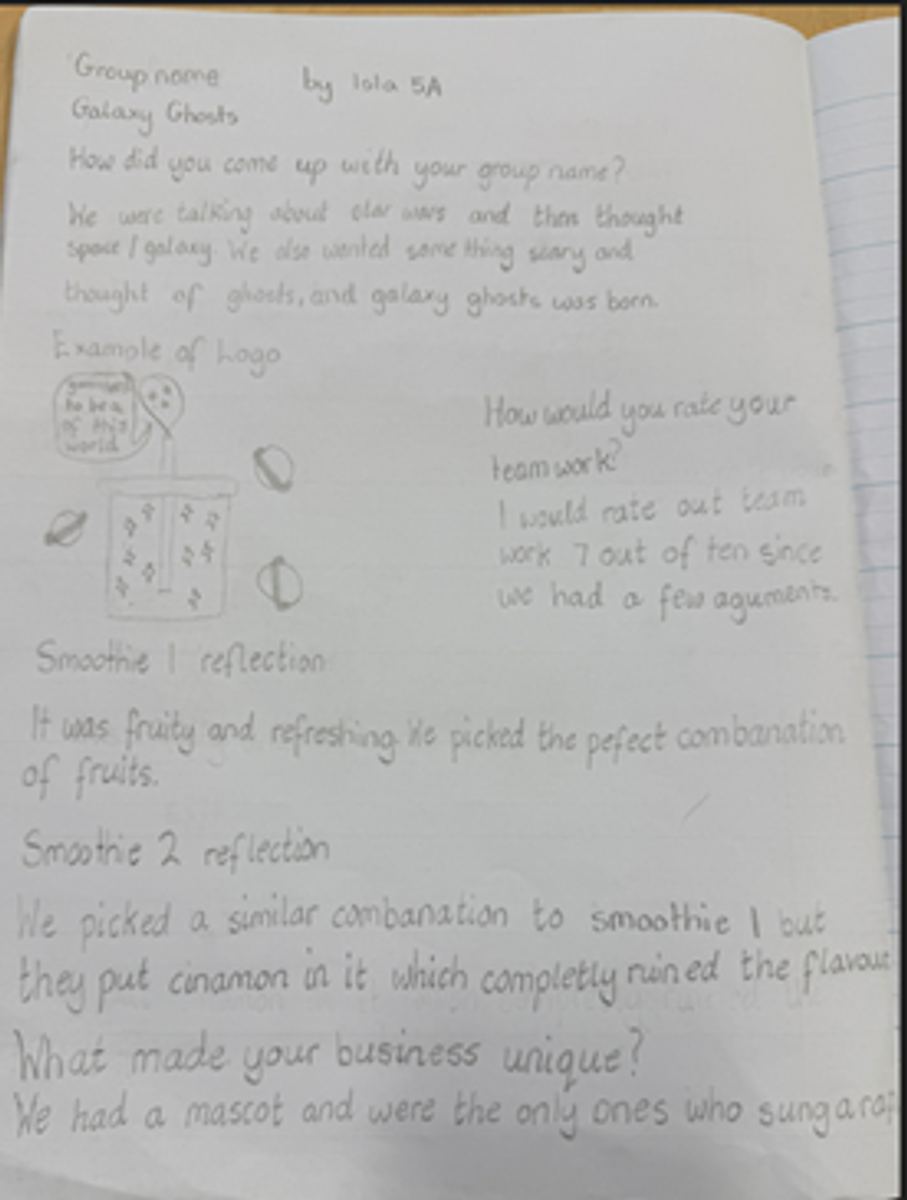 Group name by lola 5A
Galaxy Ghosts
How did you come up with your group name?
We were talking about star wars and then thought
space / galaxy. We also wanted something scary and
thought of ghosts, and galaxy ghosts was born.
Example of Logo
to be a
of this
world
How would you rate your
team work?
I would rate out team
work 7 out of ten since
we had a few aguments.
Smoothie 1 reflection
It was fruity and refreshing. We picked the pefect combanation
of fruits.
Smoothie 2 reflection
We picked a similar combanation to smoothie 1 but
they put cinamon in it which completly ruined the flavour
What made your business unique?
We had a mascot and were the only ones who sung a